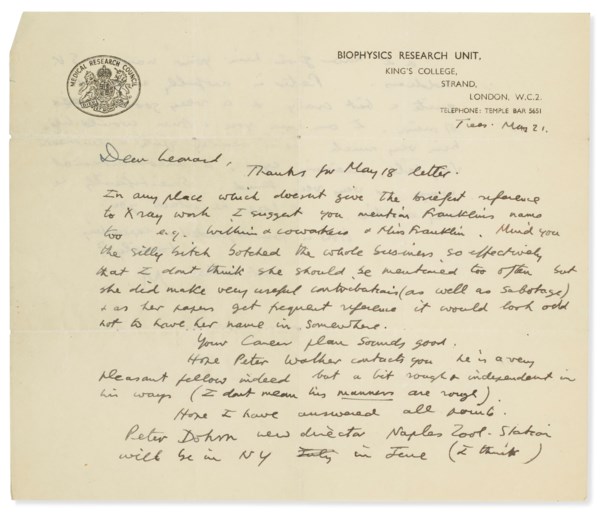 MEDICAL RESEARCH COUNCIL
BIOPHYSICS RESEARCH UNIT,
KING'S COLLEGE,
STRAND,
LONDON, W.C.2.
TELEPHONE: TEMPLE BAR 5651
Tues. May 21.
Dear Leonard,
Thanks for May 18 letter.
In any place which doesnt give the briefest reference
to X ray work I suggest you mention Franklins name
too e.g. Wilkins & coworkers & Miss Franklin. Mind you
the silly bitch botched the whole business so effectively
that I dont think she should be mentioned too often but
she did make very useful contributions (as well as sabotage)
& as her papers get frequent reference it would look odd
not to have her name in somewhere.
Your Career plan sounds good.
Hope Peter Walker contacts you he is a very
pleasant fellow indeed but a bit rough & independent in
his ways (I dont mean his manners are rough).
Hope I have answered all points.
Peter Dohrn new director Naples Zool. Station
will be in NY July in June (I think)